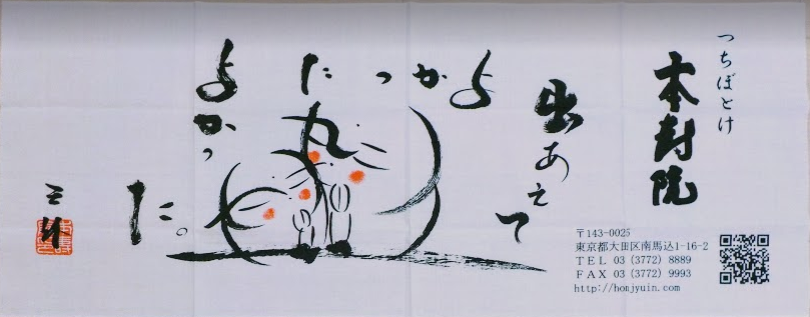 つちぼとけ
本寿院
出あえて
よかった
よかっ
た。
三休
〒143-0025
東京都大田区南馬込1-16-2
TEL 03 (3772) 8889
FAX 03 (3772) 9993
http://honjyuin.com